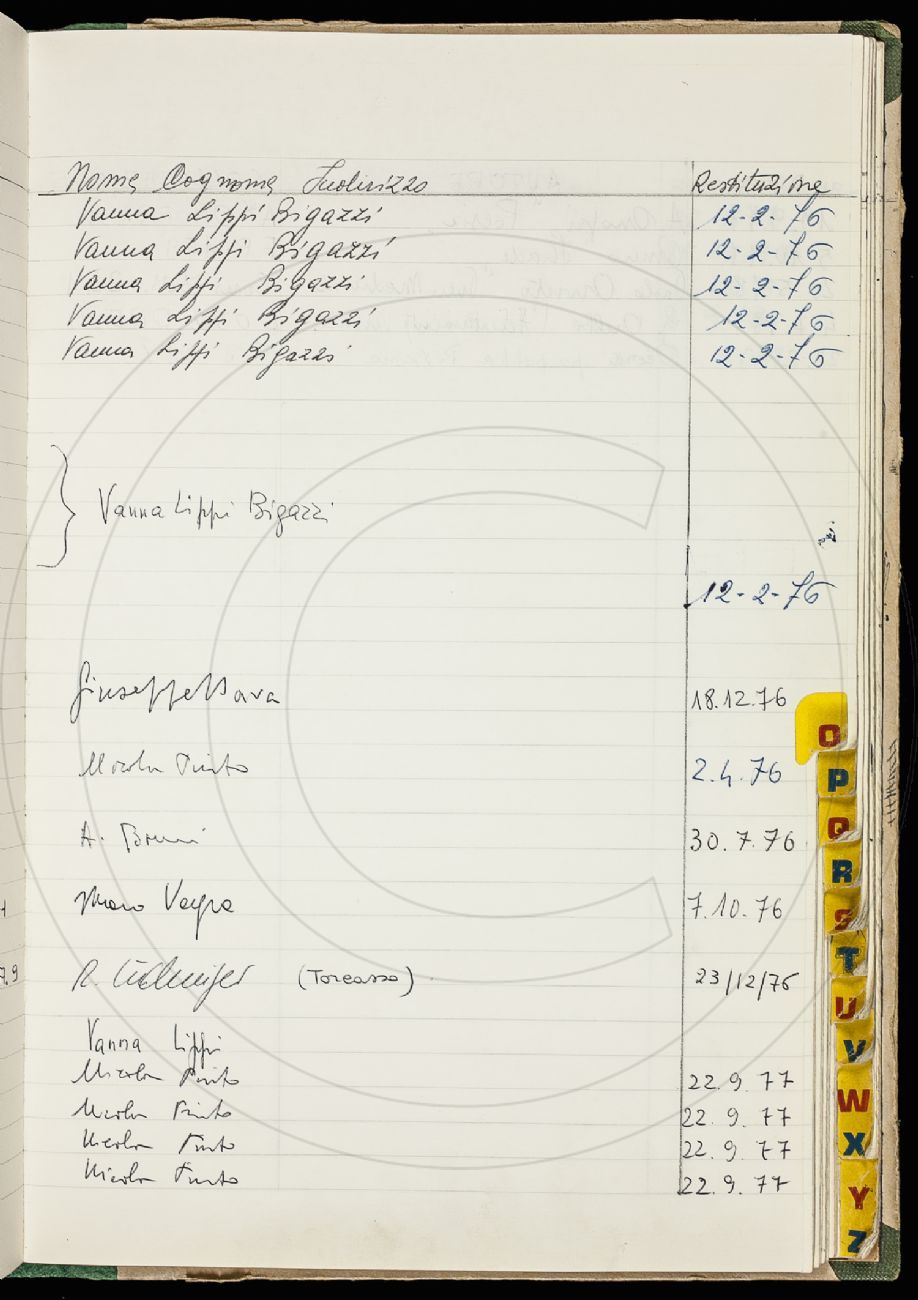 Nome Cognome Indirizzo Restituzione
Vanna Lippi Bigazzi 12-2-76
Vanna Lippi Bigazzi 12-2-76
Vanna Lippi Bigazzi 12-2-76
Vanna Lippi Bigazzi 12-2-76
Vanna Lippi Bigazzi 12-2-76
Vanna Lippi Bigazzi
12-2-76
Giuseppe 18.12.76
Nicola Pinto 2.4.76
A. Bruni 30.7.76
7.10.76
R. 23/12/76
Vanna Lippi
Nicola Pinto 22.9.77
Nicola Pinto 22.9.77
Nicola Pinto 22.9.77
Nicola Pinto 22.9.77
O
P
Q
R
S
T
U
V
W
X
Y
Z